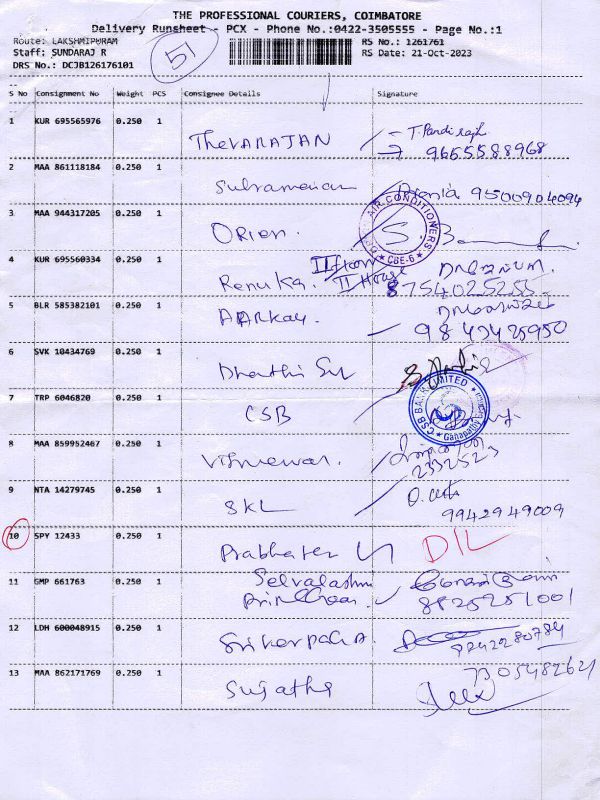 THE PROFESSIONAL COURIERS, COIMBATORE
Delivery Runsheet - PCX - Phone No.:0422-3505555 - Page No.:1
Route: LAKSHMIPURAM
RS No.: 1261761
Staff: SUNDARAJ R
51
RS Date: 21-Oct-2023
DRS No.: DCJB126176101
S No Consignment No Weight PCS Consignee Details Signature
1 KUR 695565976 0.250 1 ThevARAJAN T. Pandiraj
9655588968
2 MAA 861118184 0.250 1 Subramanian 9500904094
3 MAA 944317205 0.250 1 ORIen.
AIR CONDITIONERS
CBE-6
4 KUR 695560334 0.250 1 Renuka. II floor
II House
8754025255
5 BLR 585382101 0.250 1 AARKay.
9843425950
6 SVK 10434769 0.250 1
7 TRP 6046820 0.250 1 CSB
CSB BANK LIMITED
Ganapathy
8 MAA 859952467 0.250 1
2332523
9 NTA 14279745 0.250 1 SKL
9942949009
10 SPY 12433 0.250 1 DIL
11 GMP 661763 0.250 1
8825251001
12 LDH 600048915 0.250 1
9842280784
13 MAA 862171769 0.250 1 Sujatha
7305482621